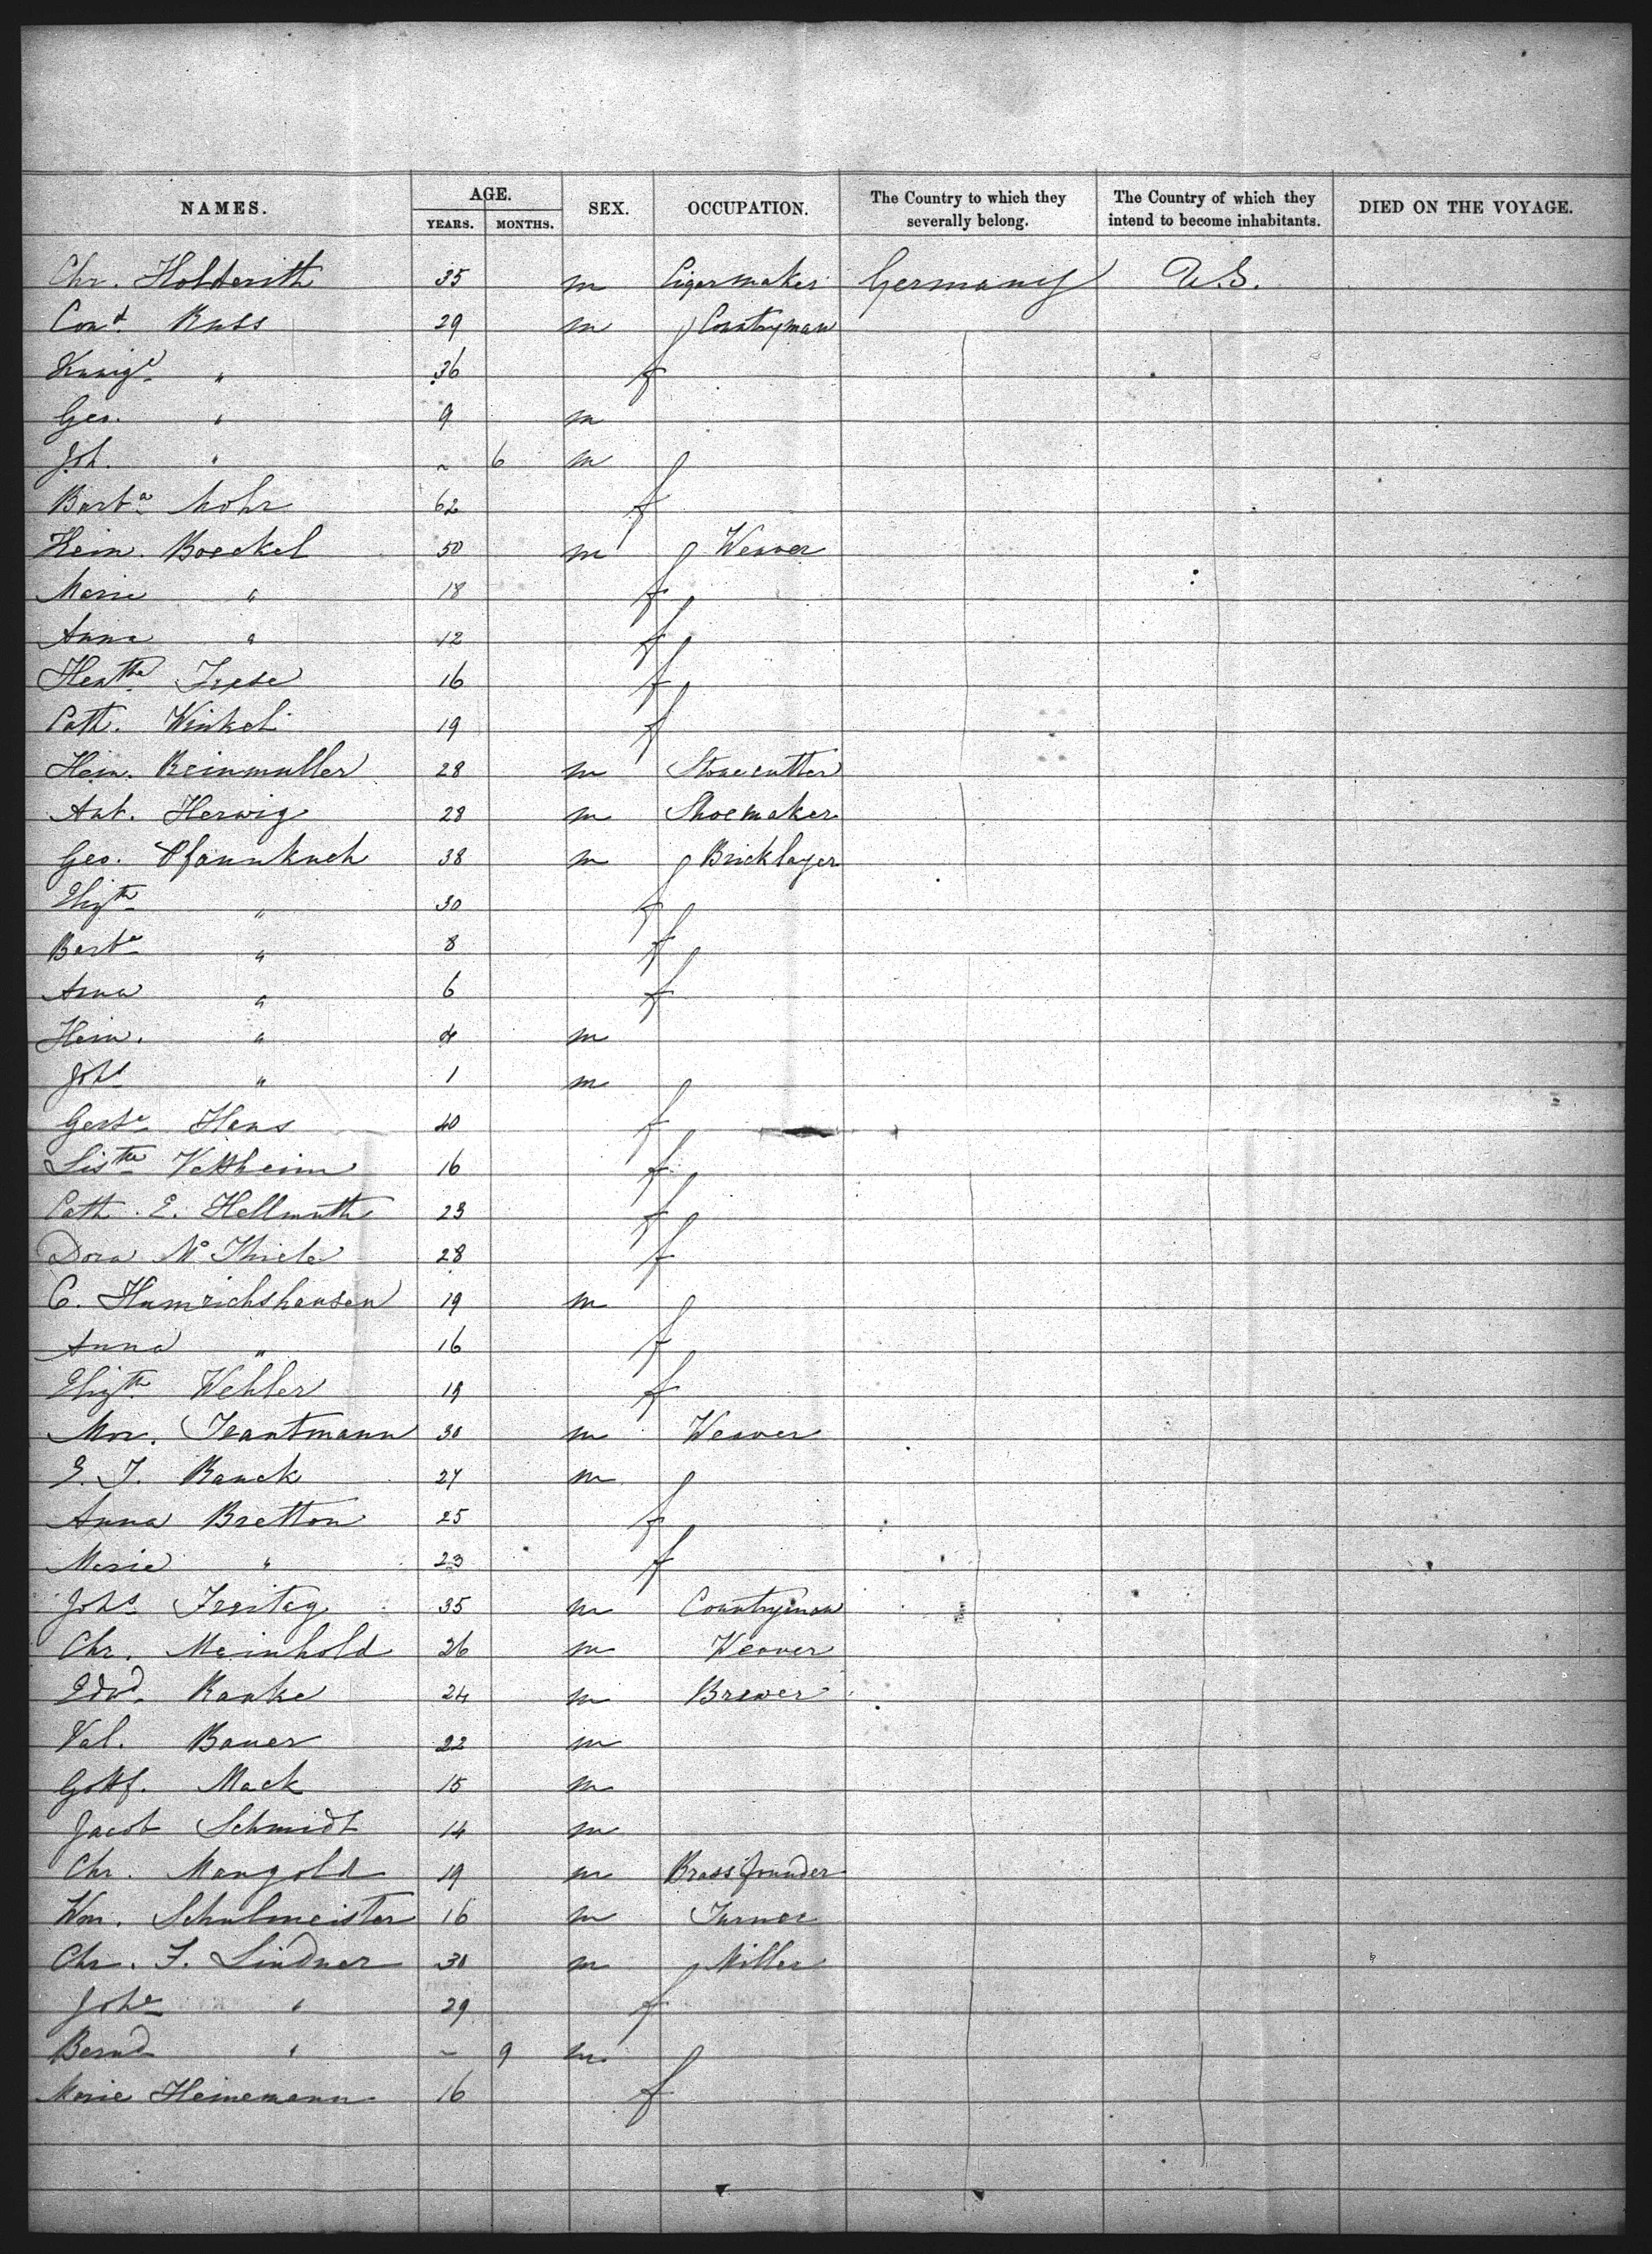 NAMES. AGE. YEARS. MONTHS. SEX. OCCUPATION. The Country to which they severally belong. The Country of which they intend to become inhabitants. DIED ON THE VOYAGE.
Chr. Holderith 35 m Cigarmaker Germany U.S.
Cond. Russ 29 m Countryman
Kunigd " 36 f
Geo. " 9 m
Joh. " ~ 6 m
Barba Mohr 62 f
Hein. Boeckel 50 m Weaver
Marie " 18 f
Anna " 12 f
16 f
Cath. Winkel 19 f
Hein. Reinmuller 28 m Stonecutter
Ant. Herwig 28 m Shoemaker
Geo. Pfannkuch 38 m Bricklayer
Elizth " 30 f
Barba " 8 f
Anna " 6 f
Hein. " 4 m
Johs " 1 m
Gerte Hans 40 f
Listhe Vettheim 16 f
Cath. E. Hellmuth 23 f
Dora Me Thiele 28 f
C. Humrichshausen 19 m
Anna " 16 f
Elizth Wehler 19 f
Mor. Trautmann 30 m Weaver
E. F. Ranck 24 m
Anna Bretton 25 f
Marie " 23 f
Johs Freitag 35 m Countryman
Chr. Meinhold 26 m Weaver
Edwd. Ranke 24 m Brewer
Val. Bauer 22 m
Gottf. Mack 15 m
Jacob Schmidt 14 m
Chr. Mangold 19 m Brassfounder
Wm. Schulmeister 16 m Turner
Chr. F. Lindner 30 m Miller
Johe " 29 f
Bernd " ~ 9 m
Marie Heinemann 16 f